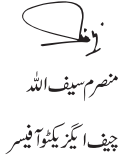 منصرم سیف اللہ
چیف ایگزیکٹو آفیسر